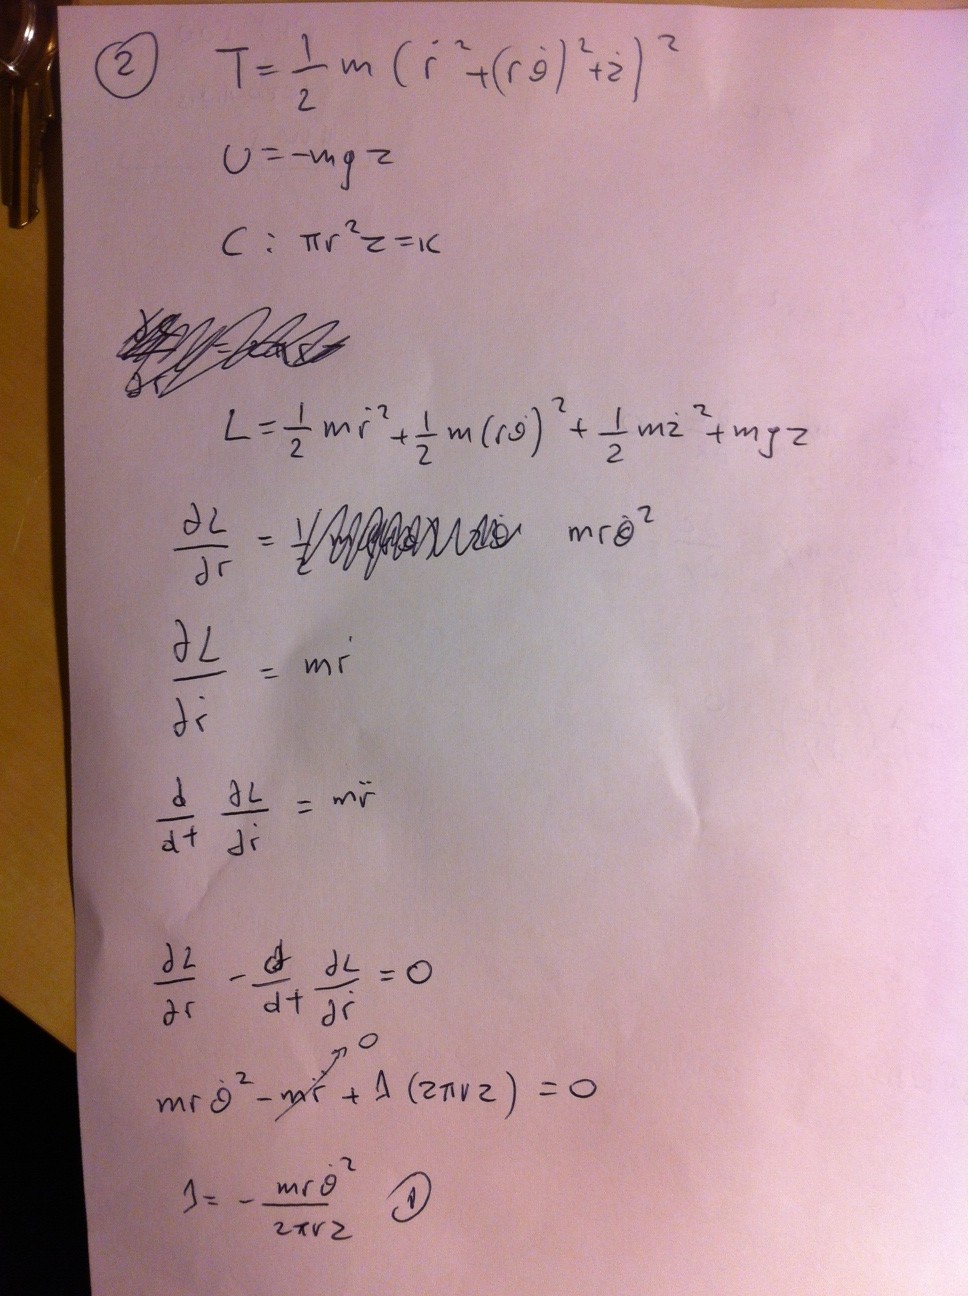 ② T = 1/2 m (ṙ² + (rθ̇)² + ż)²
U = -mgz
C : πr²z = K
L = 1/2 mṙ² + 1/2 m(rθ̇)² + 1/2 mż² + mgz
∂L/∂r = mrθ̇²
∂L/∂ṙ = mṙ
d/dt ∂L/∂ṙ = mr̈
∂L/∂r - d/dt ∂L/∂ṙ = 0
mrθ̇² - mr̈ ↗ 0 + λ (2πrz) = 0
λ = - mrθ̇² / 2πrz ①